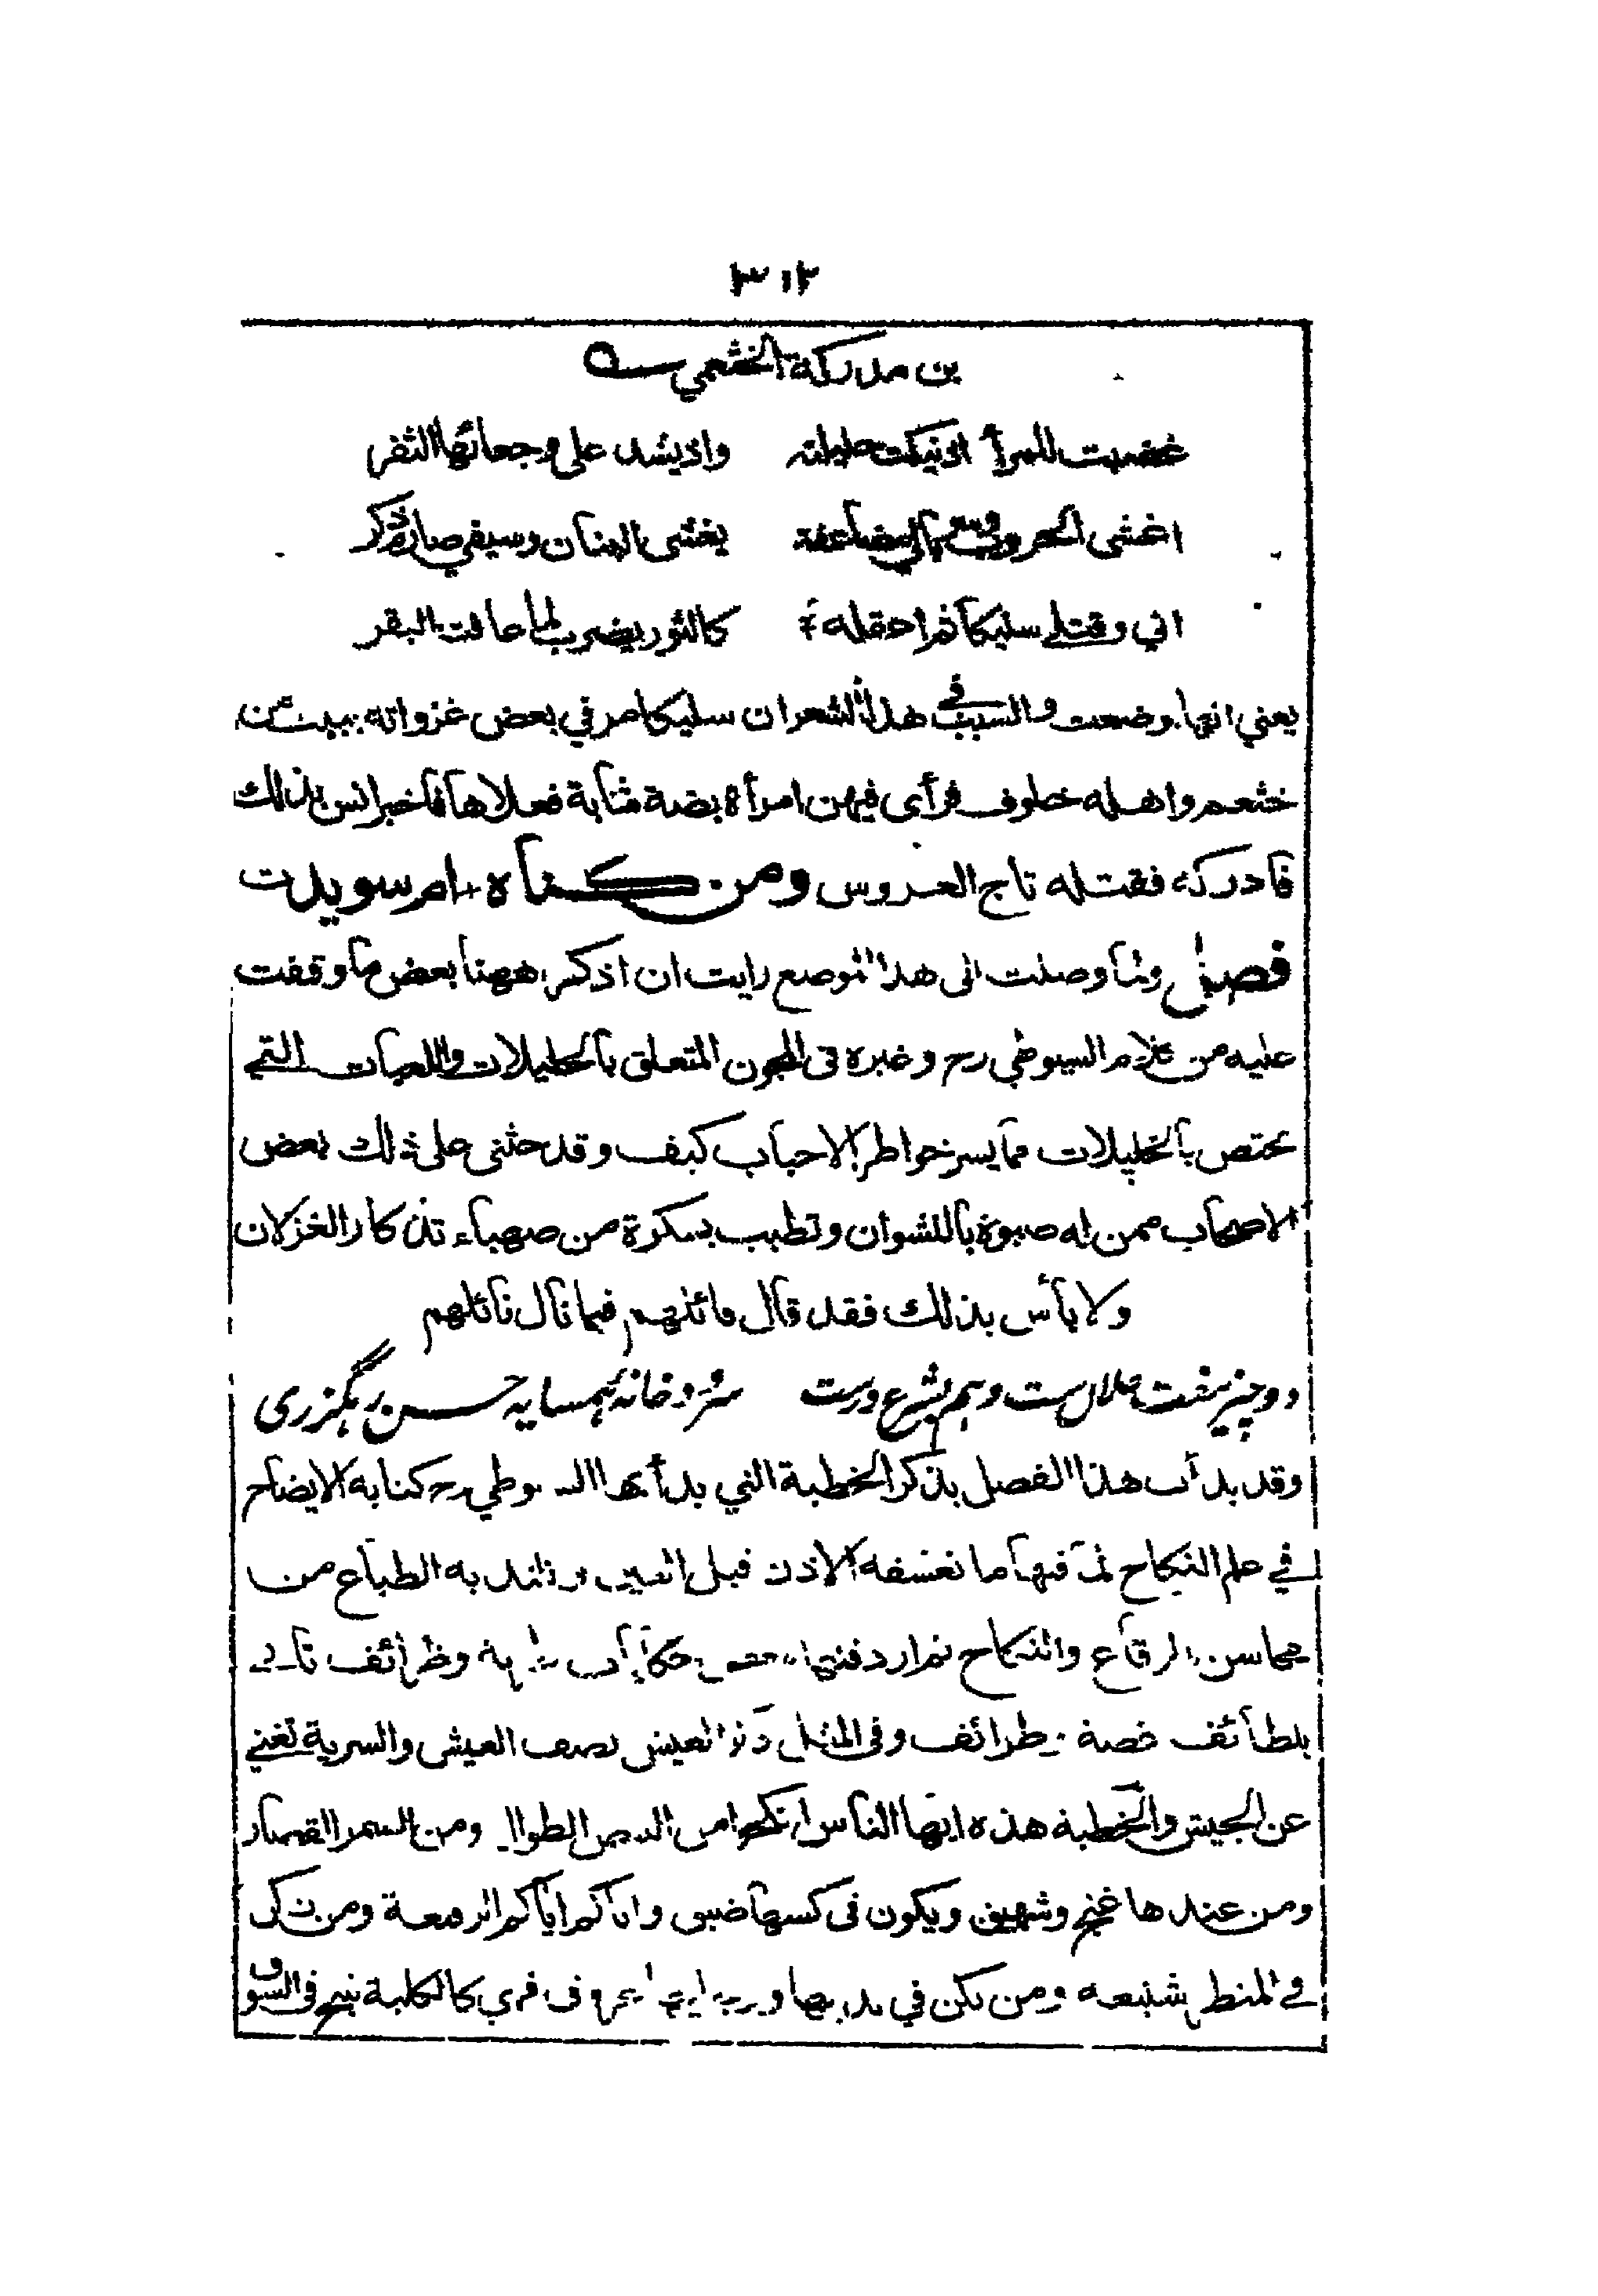 ٣١٢
بن مدركة الخثعمي
غضبت للمرأ اذ نيكت حليلته واذ يشد على وجعائها الثفر
اغشى الحروب وسربالي مضاعفة يغشى البنان وسيفي صارم ذكر
اني وقتلي سليكا ثم اعقله كالثور يضرب لما عافت البقر
يعني انها وضعت والسبب في هذا الشعر ان سليكا مر في بعض غزواته ببيت من
خثعم واهله خلوف فرأى فيهن امرأة بضة شابة فعلاها فاخبر انس بذلك
فادركه فقتله تاج العروس ومن كناه ام سويدت
فصل ولما وصلت الى هذا الموضع رايت ان اذكر ههنا بعض ما وقفت
عليه من كلام السيوطي رح وغيره في المجون المتعلق بالحليلات واللعبات التي
تختص بالخليلات مما يسر خواطر الاحباب كيف وقد حثنى على ذلك بعض
الاصحاب ممن له صبوة بالنشوان وتطيب بسكرة من صهباء تذكار الغزلان
ولا بأس بذلك فقد قال قائلهم فيما نال نائلهم
دو چيز مفت حلال ست وهم بشرع درست سرود خانه همسايه حسن رهگزرى
وقد بدأت هذا الفصل بذكر الخطبة التي بدأ بها السيوطي رح كتابه الايضاح
في علم النكاح لما فيها ما تعشقه الاذن قبل العين وتلتذ به الطباع من
محاسن الرقاع والنكاح ثم اردفتها حكايات وظرائف
بلطائف خصة ظرائف وفي المثل العيش نصف العيش والسرية تغني
عن الجيش والخطبة هذه ايها الناس انكحوا من الطوال ومن السمر القصار
ومن عندها غنج وشهيق ويكون في كسها ضيق واياكم اياكم ومن
في المنظر شنيعه ومن تكن في فهي كالكلبة تنبح في السوق